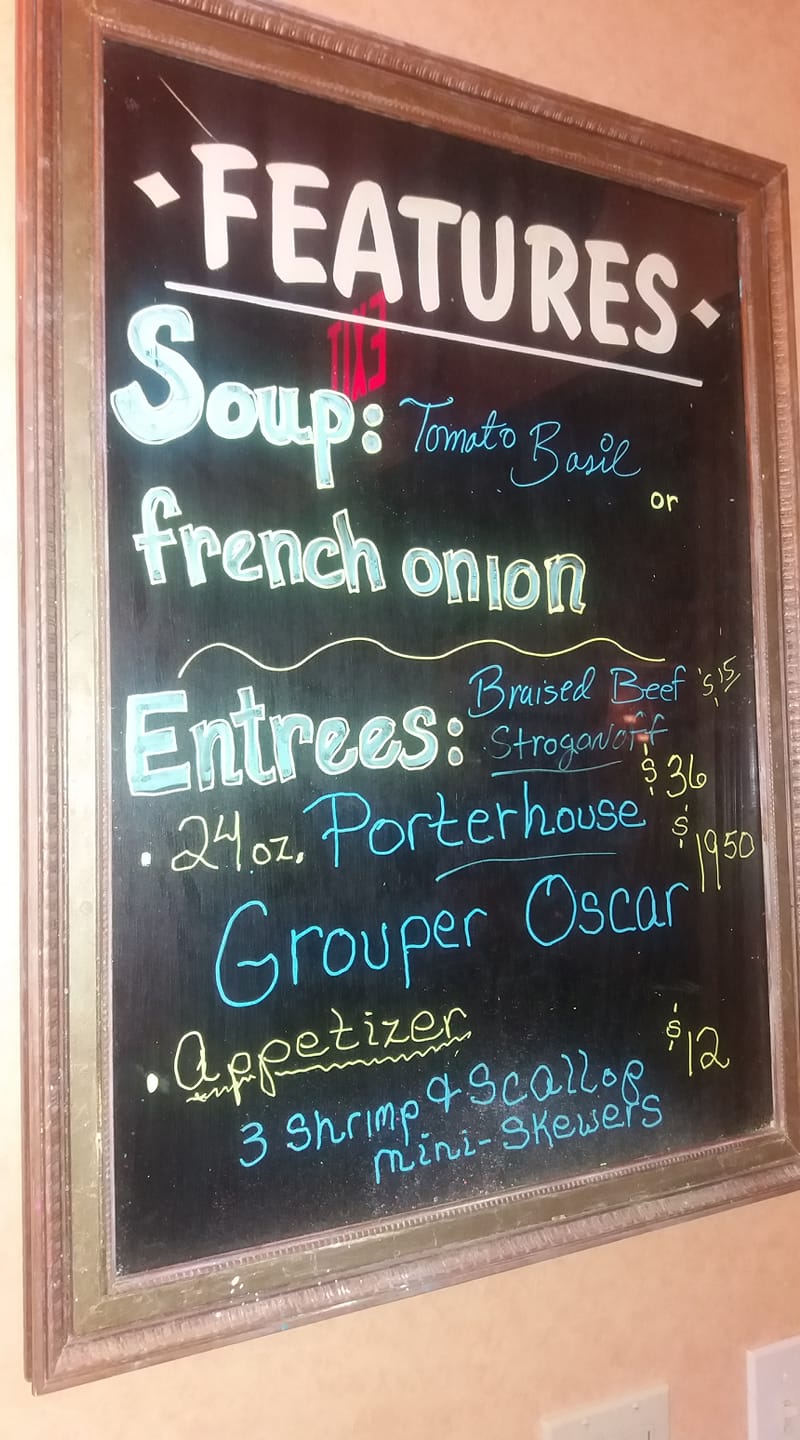 FEATURES
EXIT
Soup: Tomato Basil
or
french onion
Entrees: Braised Beef $15
Stroganoff
• 24 oz. Porterhouse $36
Grouper Oscar $1950
• Appetizer $12
3 Shrimp & Scallop
mini-skewers